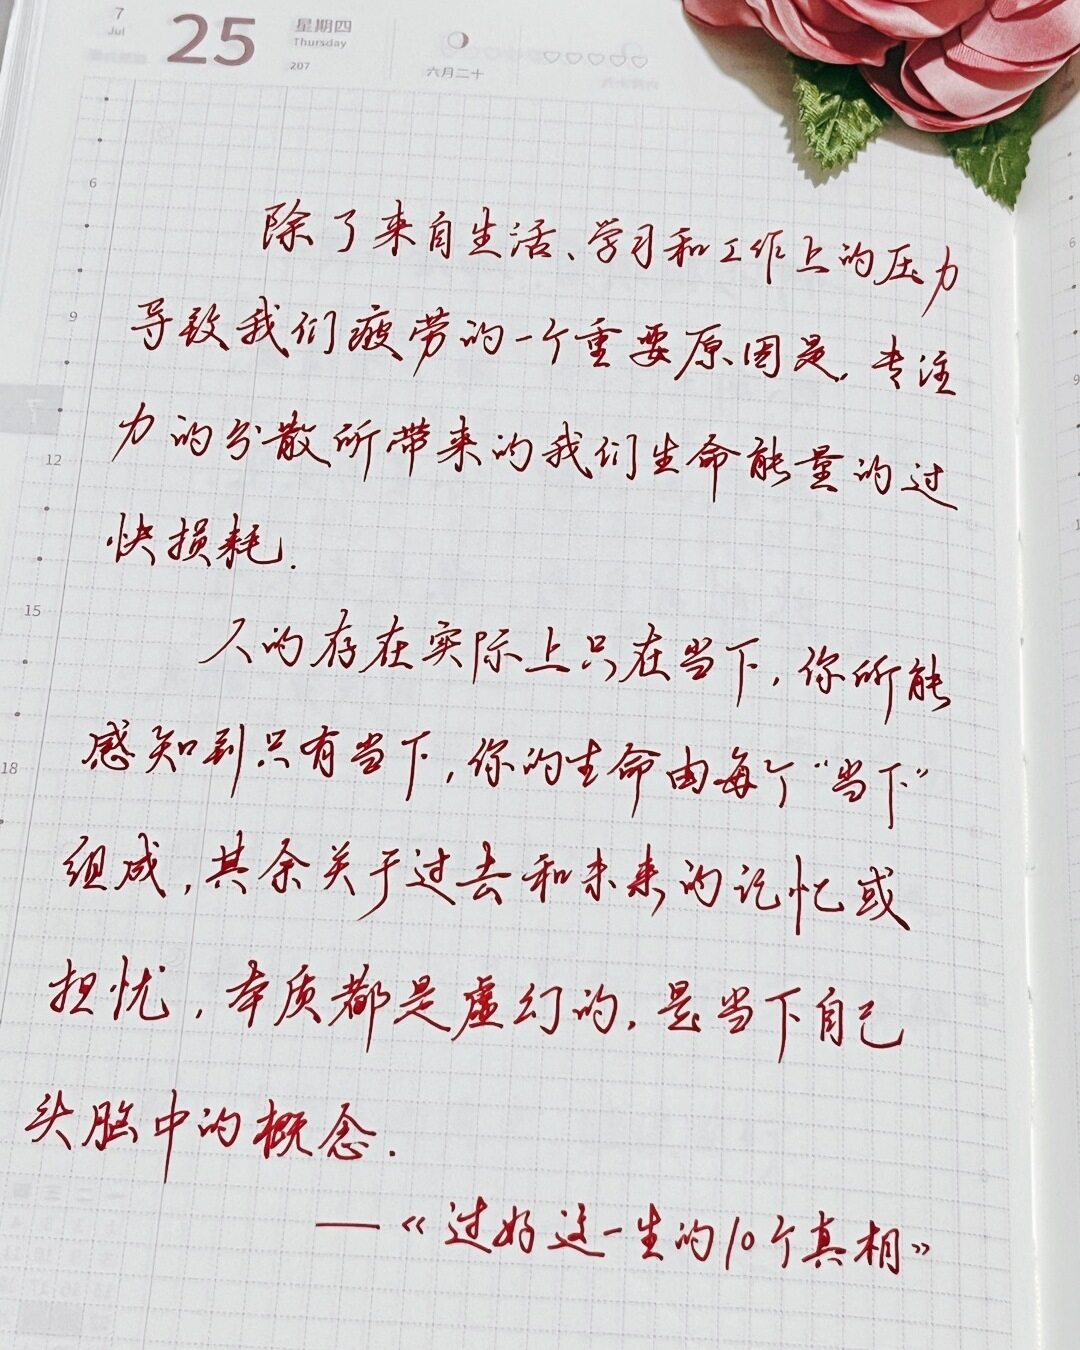 7
Jul
25
星期四
Thursday
207
六月二十
6
除了来自生活、学习和工作上的压力
9
导致我们疲劳的一个重要原因是,专注
力的分散所带来的我们生命能量的过
12
快损耗.
15
人的存在实际上只在当下,你所能
感知到只有当下,你的生命由每个“当下”
18
组成,其余关于过去和未来的记忆或
担忧,本质都是虚幻的,是当下自己
头脑中的概念.
——《过好这一生的10个真相》